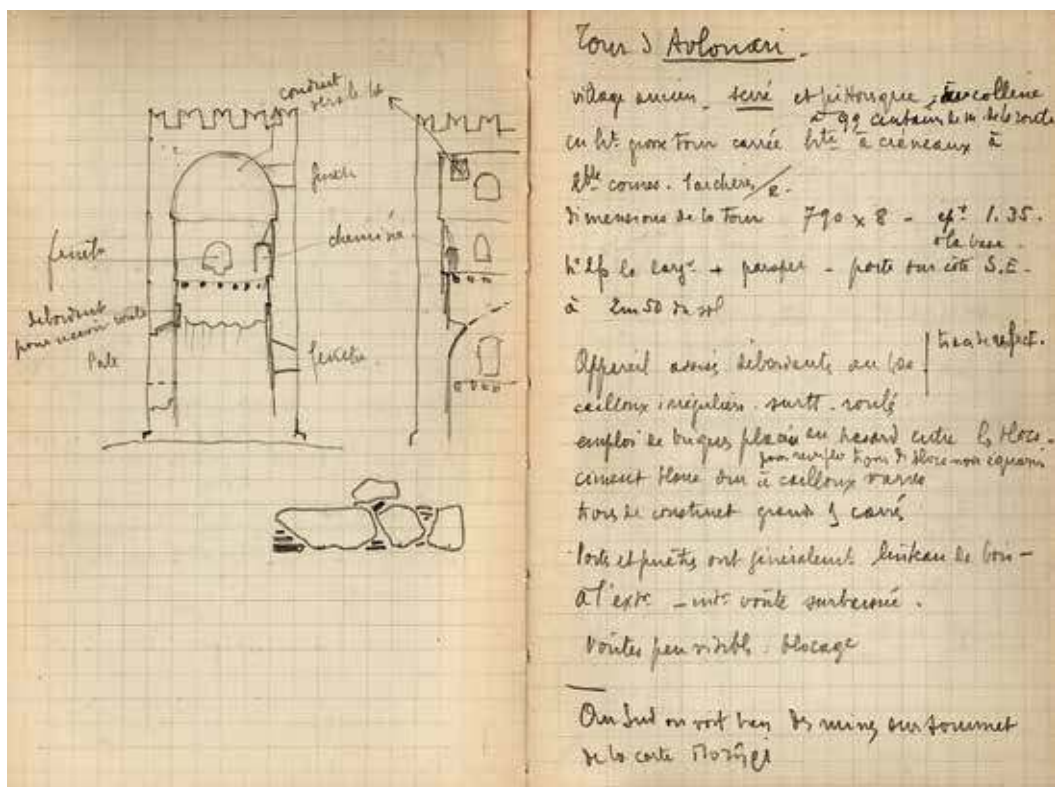 conduit
vers le ht
fenêtre
cheminée
fenêtre
debordant
pour recevoir voute
Porte
fenêtre
Tour d'Avlonari.
village ancien serré et pittoresque, sur colline
à qq centaines de m. de la route
en ht grosse tour carrée hte à créneaux à
dble cornes. 1 archère/2.
dimensions de la tour 790 x 8 - epr 1.35.
à la base.
ht 2 fs la largr + parapet - porte sur côté S.E.
à 2m50 du sol
traces refect.
Appareil assises débordantes au bas
cailloux irréguliers. surtt. roulé
emploi de briques placées au hasard entre les blocs.
blocs non équarris
ciment blanc dur à cailloux
trous de construct grands & carrés
Portes et fenêtres ont généralement linteau de bois -
à l'extr - intr voûte surbaissée.
Voûtes peu visibles. blocage
Au Sud on voit bien des ruines sur sommet
de la carte